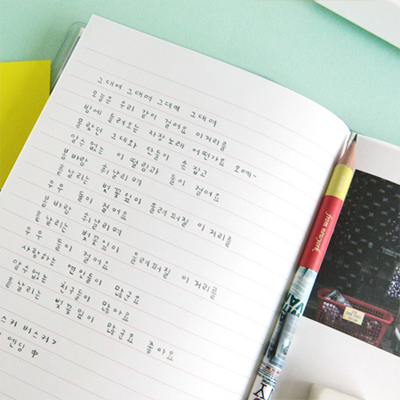 그대여 그대여 그대여 그대여
오늘은 우리 같이 걸어요 이 거리를
밤에 들려오는 자장노래 어떤가요 오예~
몰랐던 그대와 단둘이 손 잡고
알수 없는 이 떨림과 둘이 걸어요
봄바람 휘날리며
흩날리는 벚꽃 잎이 울려퍼질 이 거리를
우우 둘이 걸어요
봄바람 휘날리며
흩날리는 벚꽃 잎이 울려퍼질 이 거리를
우우 둘이 걸어요
사랑하는 연인들이 많군요
알수 없는 친구들이 많아요
흩날리는 벚꽃 잎이 많군요 좋아요
스커 버스커>
엔딩 中